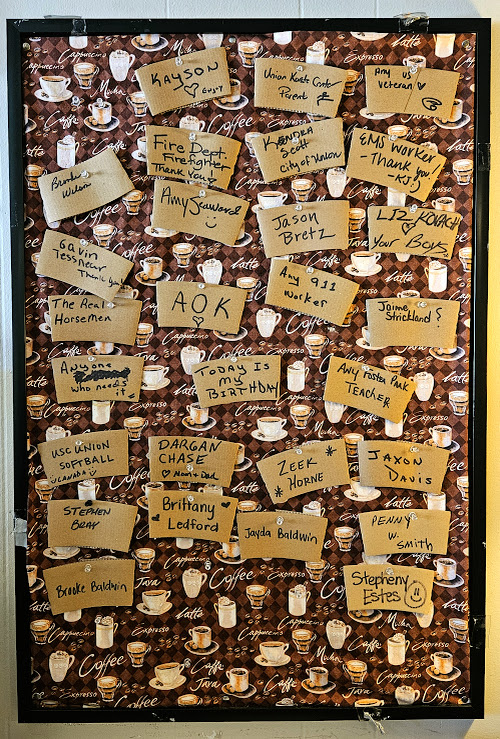 KAYSON
Guy?
Union Kost Crate
Parent
Any US
Veteran
Fire Dept.
Firefighter
Thank you!
KENDRA
Scott
City of Union
EMS Worker
- Thank you!
-KJ
Brooke
Wilson
Amy Seawood
Jason
Bretz
LIZ KOVACH
Your Boys
Gavin
Tessnear
Thank you
Any 911
Worker
The Real
Horsemen
AOK
Jaime
Strickland
Anyone
who needs
it
TODAY IS
my
BIRTHDAY
Any Foster Park
TEACHER
USC UNION
SOFTBALL
CANADA
DARGAN
CHASE
Mom + Dad
ZEEK
HORNE
JAXON
DAVIS
STEPHEN
BRAY
Brittany
Ledford
Jayda Baldwin
PENNY
W.
SMITH
Brooke Baldwin
Stepheny
Estes